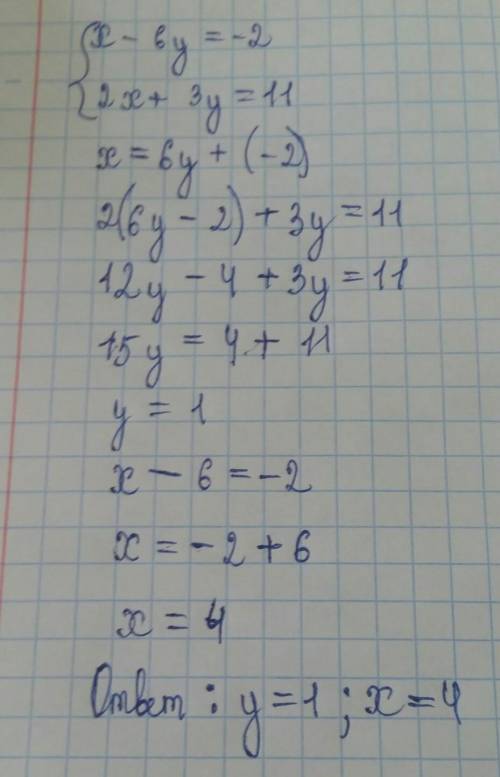 x - 6y = -2
2x + 3y = 11
x = 6y + (-2)
2(6y - 2) + 3y = 11
12y - 4 + 3y = 11
15y = 4 + 11
y = 1
x - 6 = -2
x = -2 + 6
x = 4
Ответ: y = 1; x = 4